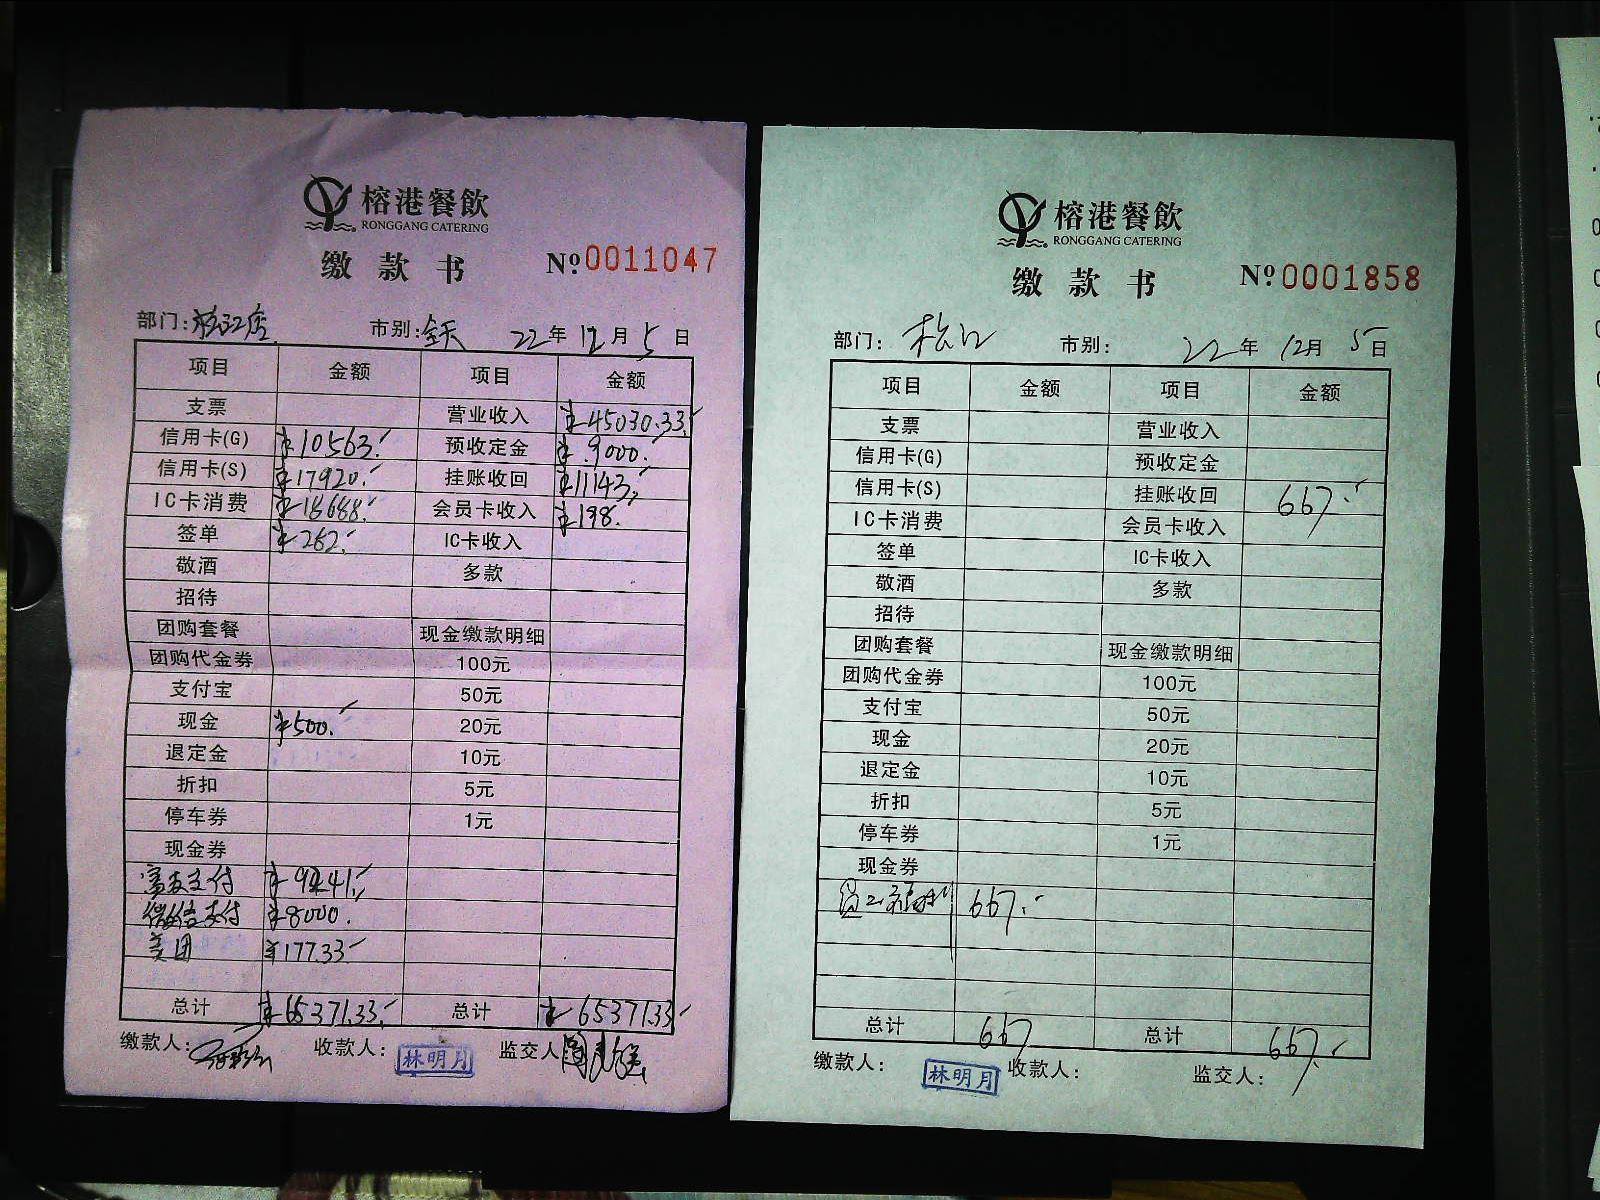 榕港餐飲
RONGGANG CATERING
缴款书 №0011047
部门:松江店 市别:全天 22年12月5日
项目 金额 项目 金额
支票 营业收入 ¥45030.33
信用卡(G) ¥10563. 预收定金 ¥9000.
信用卡(S) ¥17920. 挂账收回 ¥11143.
IC卡消费 ¥18688. 会员卡收入 ¥198.
签单 ¥262. IC卡收入
敬酒 多款
招待
团购套餐 现金缴款明细
团购代金券 100元
支付宝 50元
现金 ¥500. 20元
退定金 10元
折扣 5元
停车券 1元
现金券
支付
微信支付 ¥8000.
美团 ¥177.33
总计 ¥65371.33 总计 ¥65371.33
缴款人: 收款人: 林明月 监交人
榕港餐飲
RONGGANG CATERING
缴款书 №0001858
部门: 松江 市别: 22年12月5日
项目 金额 项目 金额
支票 营业收入
信用卡(G) 预收定金
信用卡(S) 挂账收回 667.
IC卡消费 会员卡收入
签单 IC卡收入
敬酒 多款
招待
团购套餐 现金缴款明细
团购代金券 100元
支付宝 50元
现金 20元
退定金 10元
折扣 5元
停车券 1元
现金券
员工福利 667.
总计 667 总计 667.
缴款人: 林明月 收款人: 监交人: